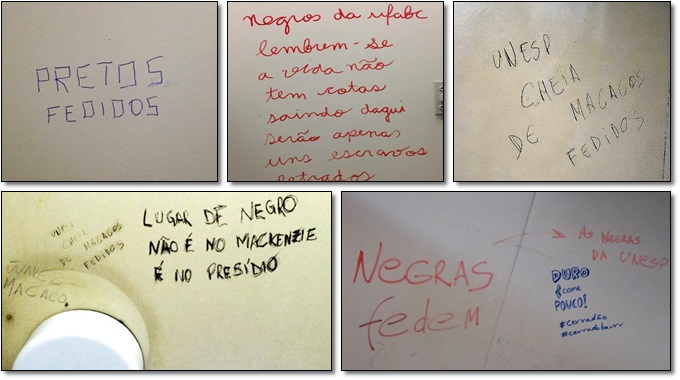 PRETOS
FEDIDOS
negros da ufabc
lembrem-se
a vida não
tem cotas
saindo daqui
serão apenas
uns escravos
letrados
UNESP
CHEIA
DE MACACOS
FEDIDOS
UNESP
CHEIA
DE MACACOS
FEDIDOS
JUAREZ
MACACO.
LUGAR DE NEGRO
NÃO É NO MACKENZIE
É NO PRESÍDIO
NEGRAS
fedem
AS NEGRAS
DA UNESP
DURO
POUCO!
#cerradão